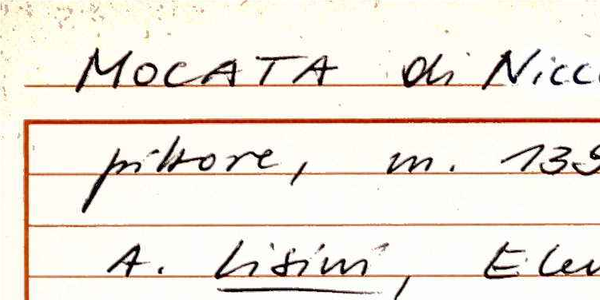 MOCATA di Nicc
pittore, m. 139
A. Lisini, Elen